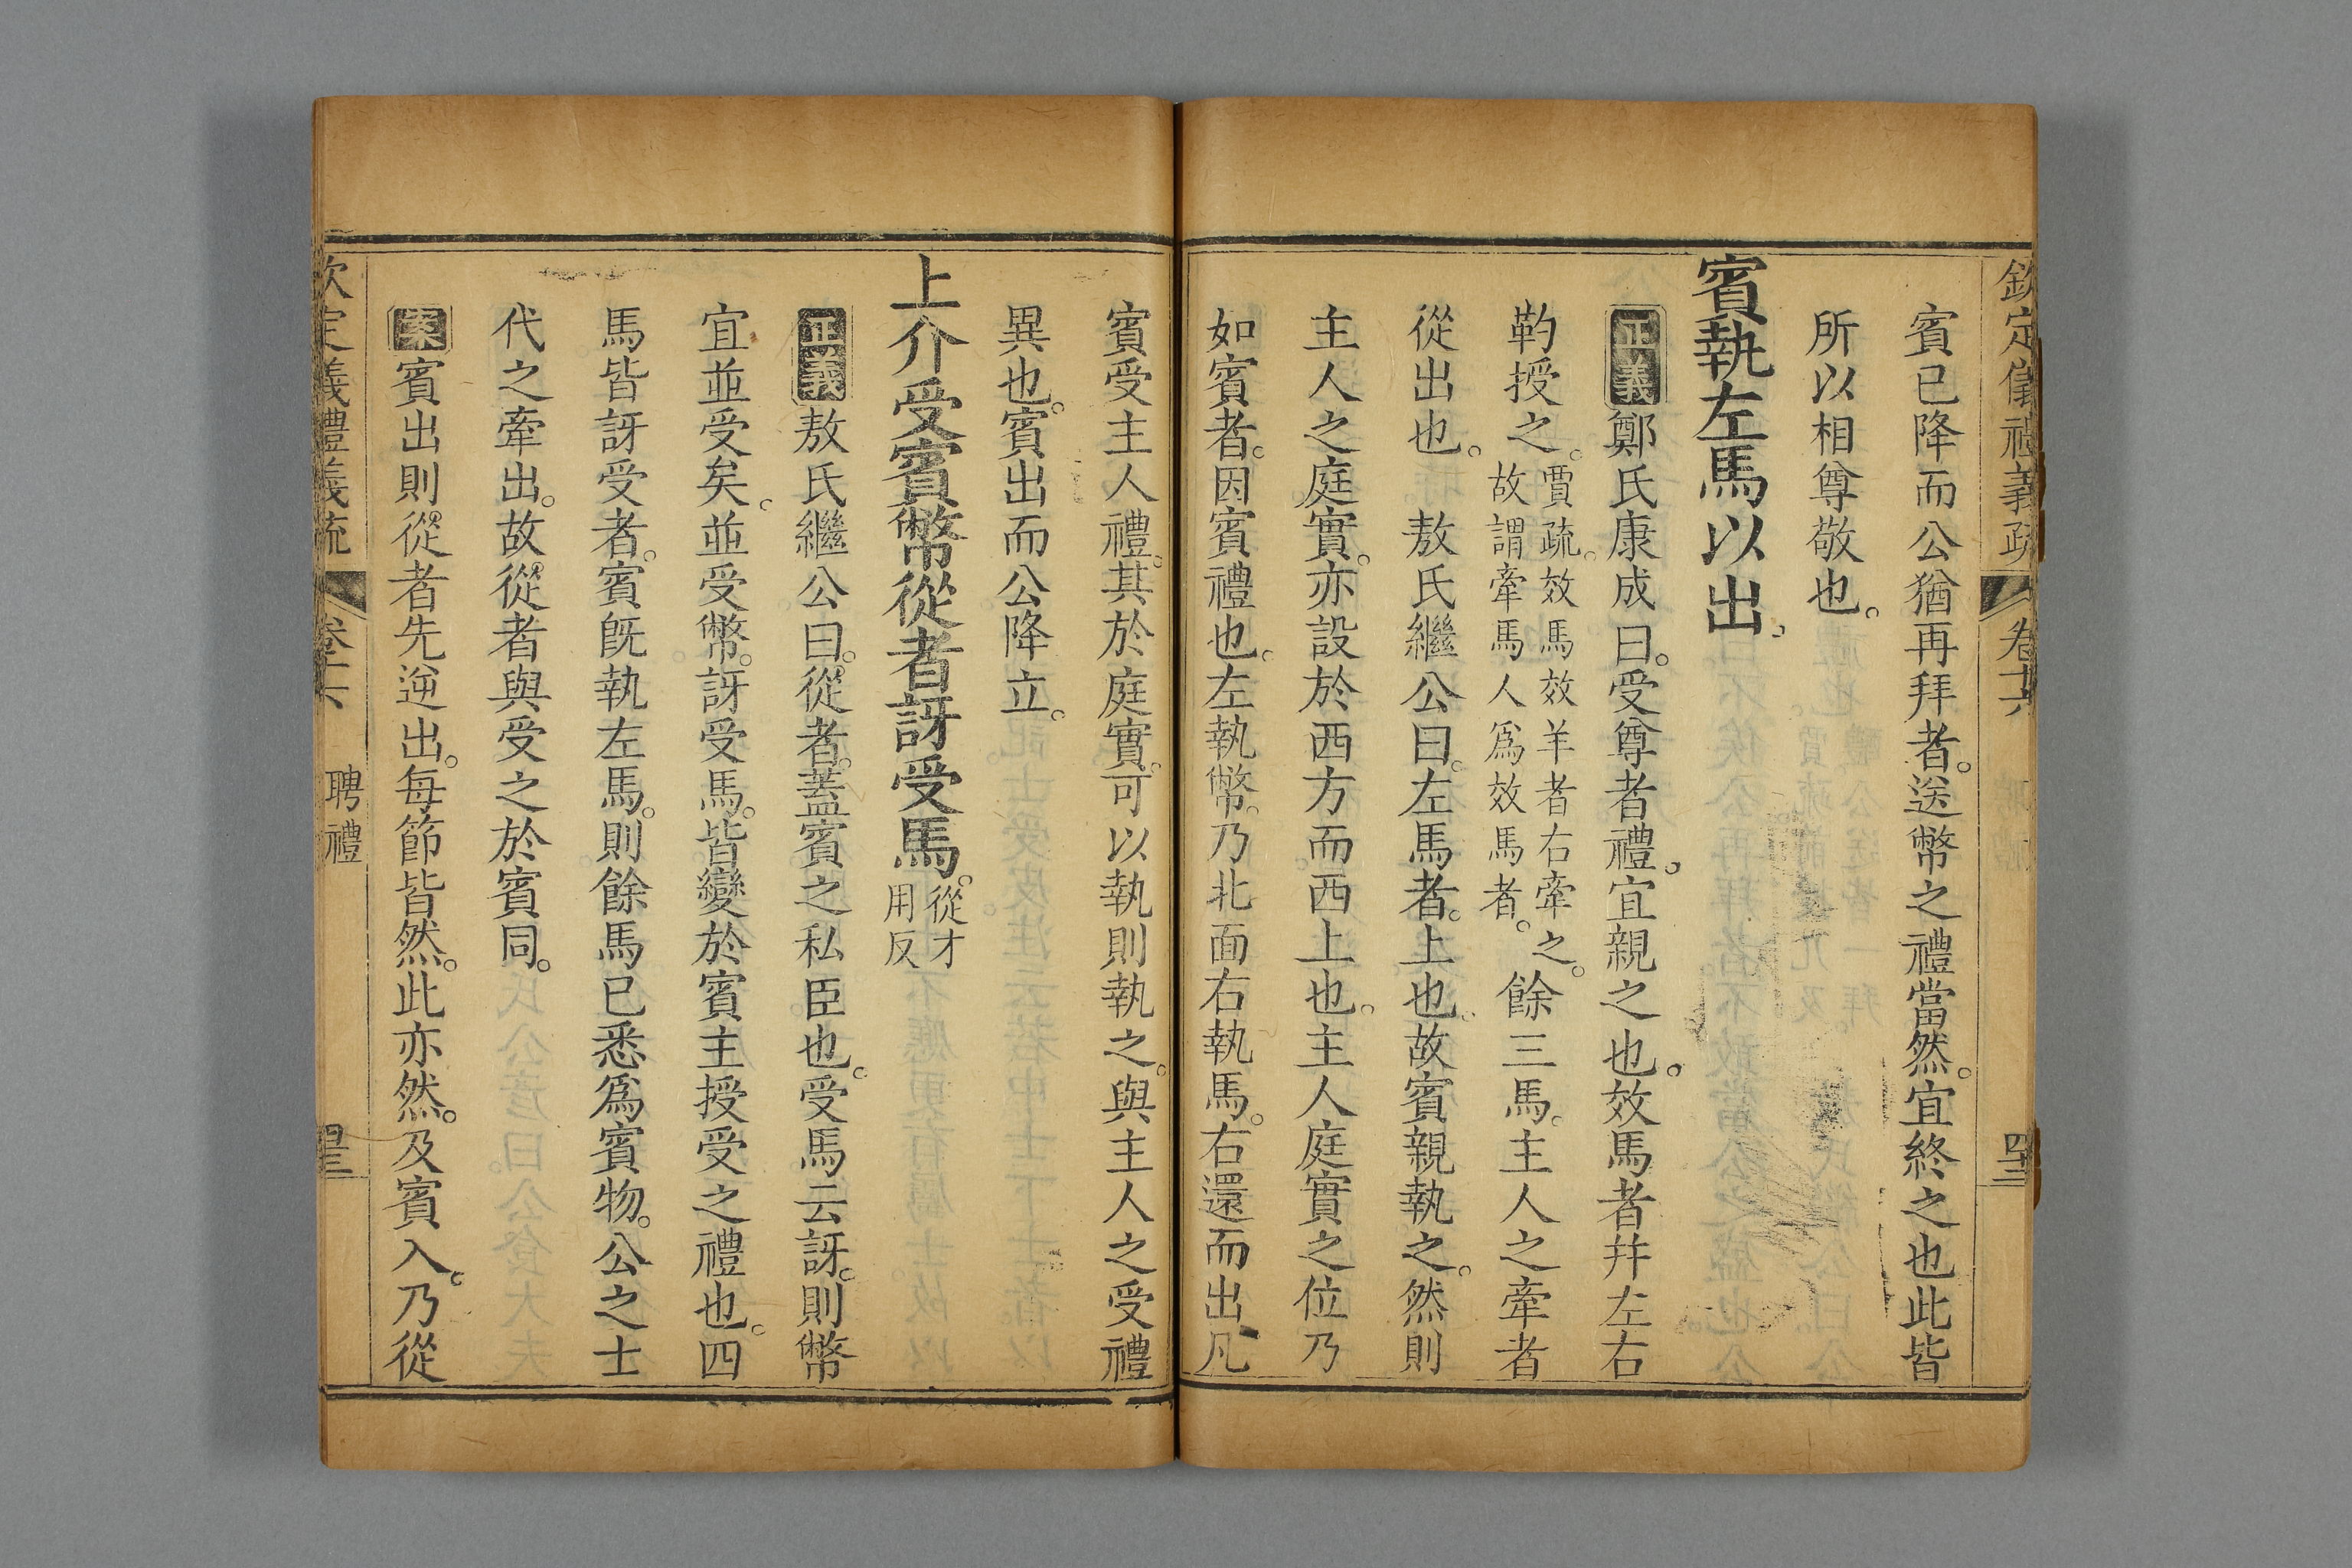 欽定儀禮義疏 卷十六 四三
賓已降而公猶再拜者。送幣之禮當然。宜終之也此皆
所以相尊敬也。
賓執左馬以出。
正義鄭氏康成曰。受尊者禮。宜親之也。效馬者幷左右
靮授之。賈疏。效馬效羊者右牽之。故謂牽馬人爲效馬者。餘三馬。主人之牽者
從出也。 敖氏繼公曰。左馬者。上也。故賓親執之。然則
主人之庭實。亦設於西方而西上也。主人庭實之位乃
如賓者。因賓禮也。左執幣。乃北面右執馬。右還而出凡
賓受主人禮。其於庭實。可以執則執之。與主人之受禮
異也。賓出而公降立。
上介受賓幣從者訝受馬。從才用反
正義敖氏繼公曰。從者。蓋賓之私臣也。受馬云訝。則幣
宜並受矣。並受幣。訝受馬。皆變於賓主授受之禮也。四
馬皆訝受者。賓旣執左馬。則餘馬已悉爲賓物。公之士
代之牽出。故從者與受之於賓同。
案賓出則從者先逆出。每節皆然。此亦然。及賓入。乃從
欽定儀禮義疏 卷十六 聘禮 四三